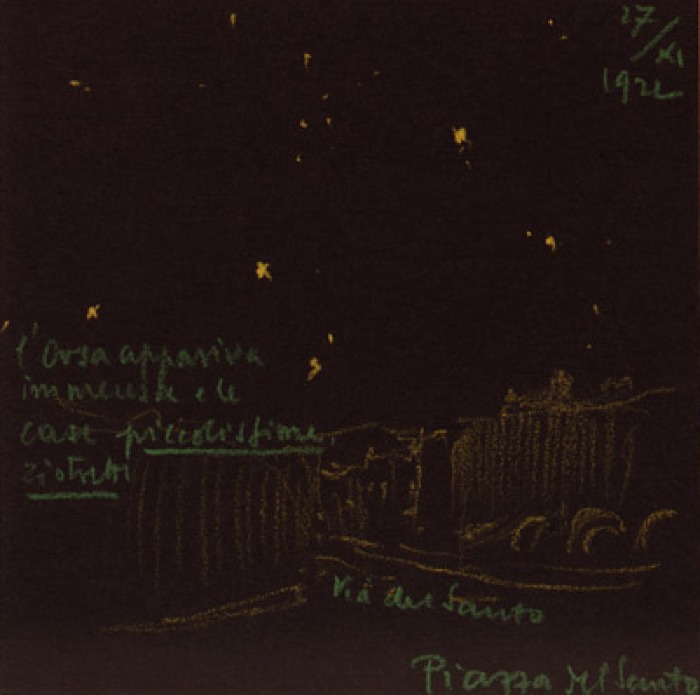 27/XI
192
l'Orsa appariva
immensa e le
case piccolissime,
Via del Santo
Piazza del Santo